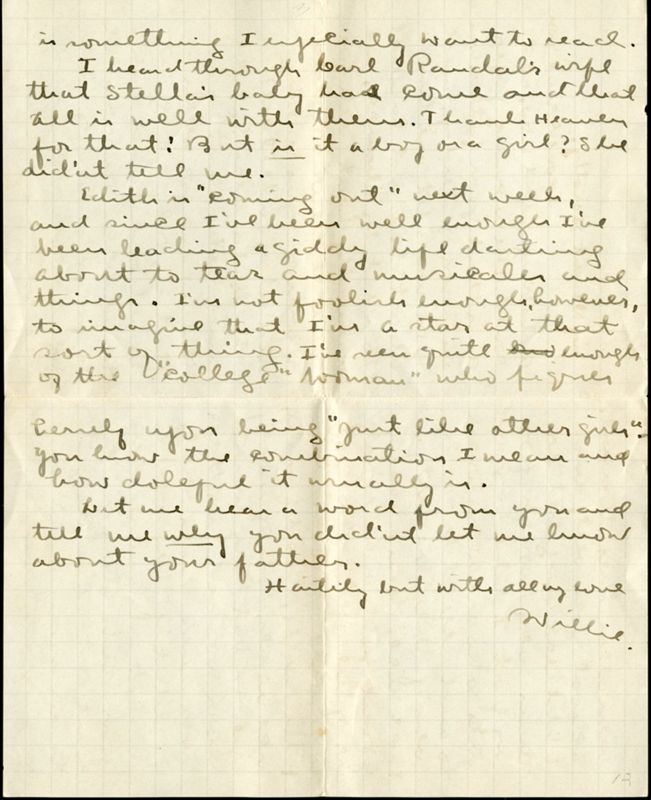 is something I especially want to read.
I heard through Carl Randal's wife
that Stella's baby had come and that
all is well with them. Thank Heaven
for that! But is it a boy or a girl? She
did'nt tell me.
Edith is "coming out" next week,
and since I've been well enough I've
been leading a giddy life darting
about to teas and musicales and
things. I'm not foolish enough, however,
to imagine that I'm a star at that
sort of thing. I've seen quite enough
of the "college" woman" who figures
upon being "just like other girls".
You know the combination I mean and
how doleful it usually is.
Let me hear a word from you and
tell me why you did'nt let me know
about your father.
Hastily but with all my love
Willie.
12